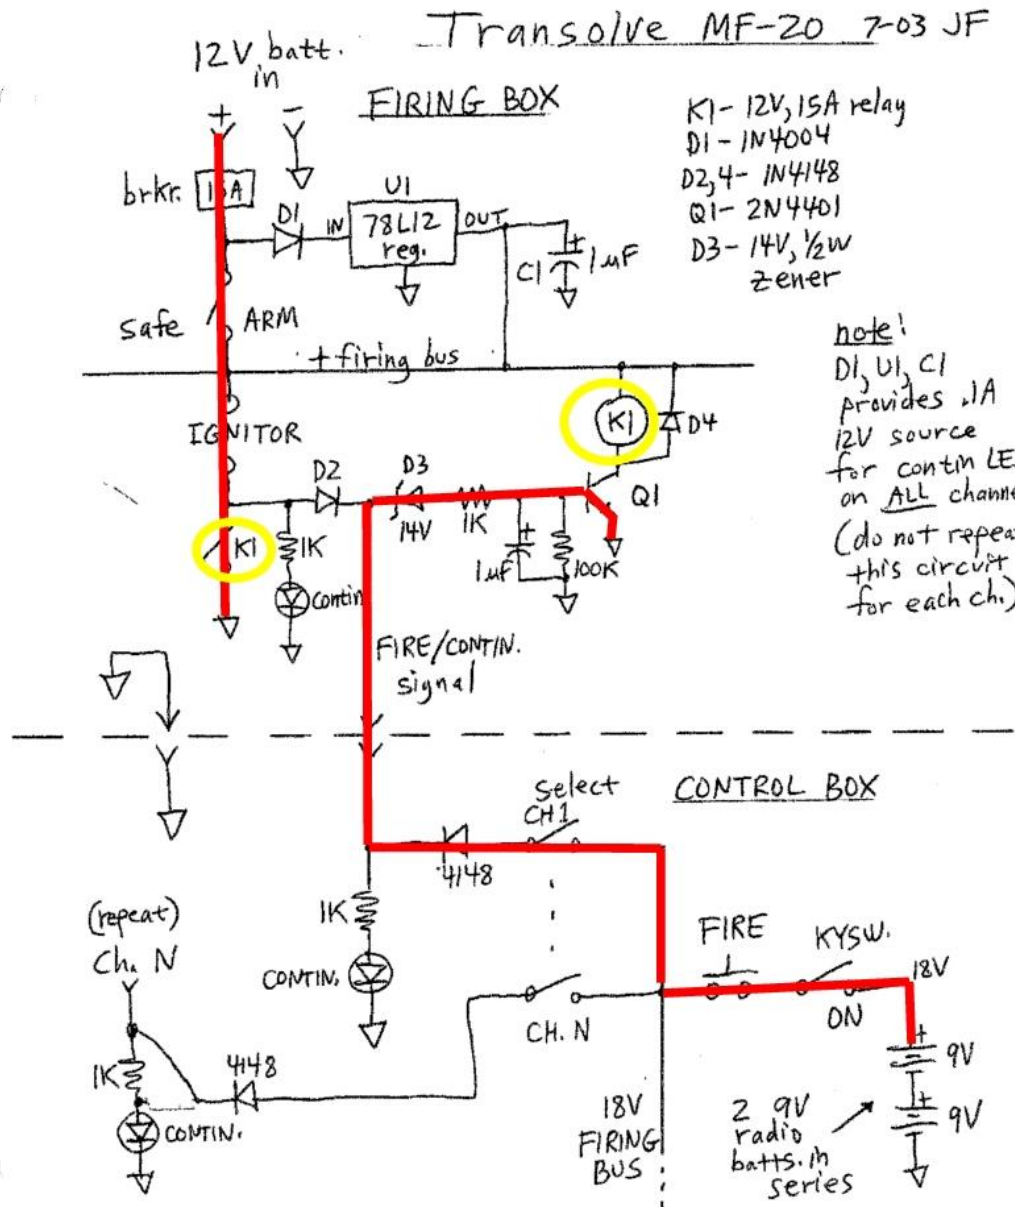 Transolve MF-20 7-03 JF
12V batt.
in
+ -
FIRING BOX
K1- 12V, 15A relay
D1- 1N4004
D2,4- 1N4148
Q1- 2N4401
D3- 14V, 1/2W
zener
brkr.
D1
IN
U1
78L12
reg.
OUT
+
C1
1µF
Safe
ARM
+ firing bus
note!
D1, U1, C1
provides .1A
12V source
for contin LE
on ALL channe
(do not repea
this circuit
for each ch.)
K1
D4
IGNITOR
D2
D3
14V
1K
Q1
K1
1K
+
1µF
100K
Contin
FIRE/CONTIN.
signal
CONTROL BOX
Select
CH1
4148
1K
CONTIN.
(repeat)
Ch. N
FIRE
KYSW.
18V
ON
CH. N
+
9V
+
9V
1K
4148
CONTIN.
18V
FIRING
BUS
2 9V
radio
batts. in
series